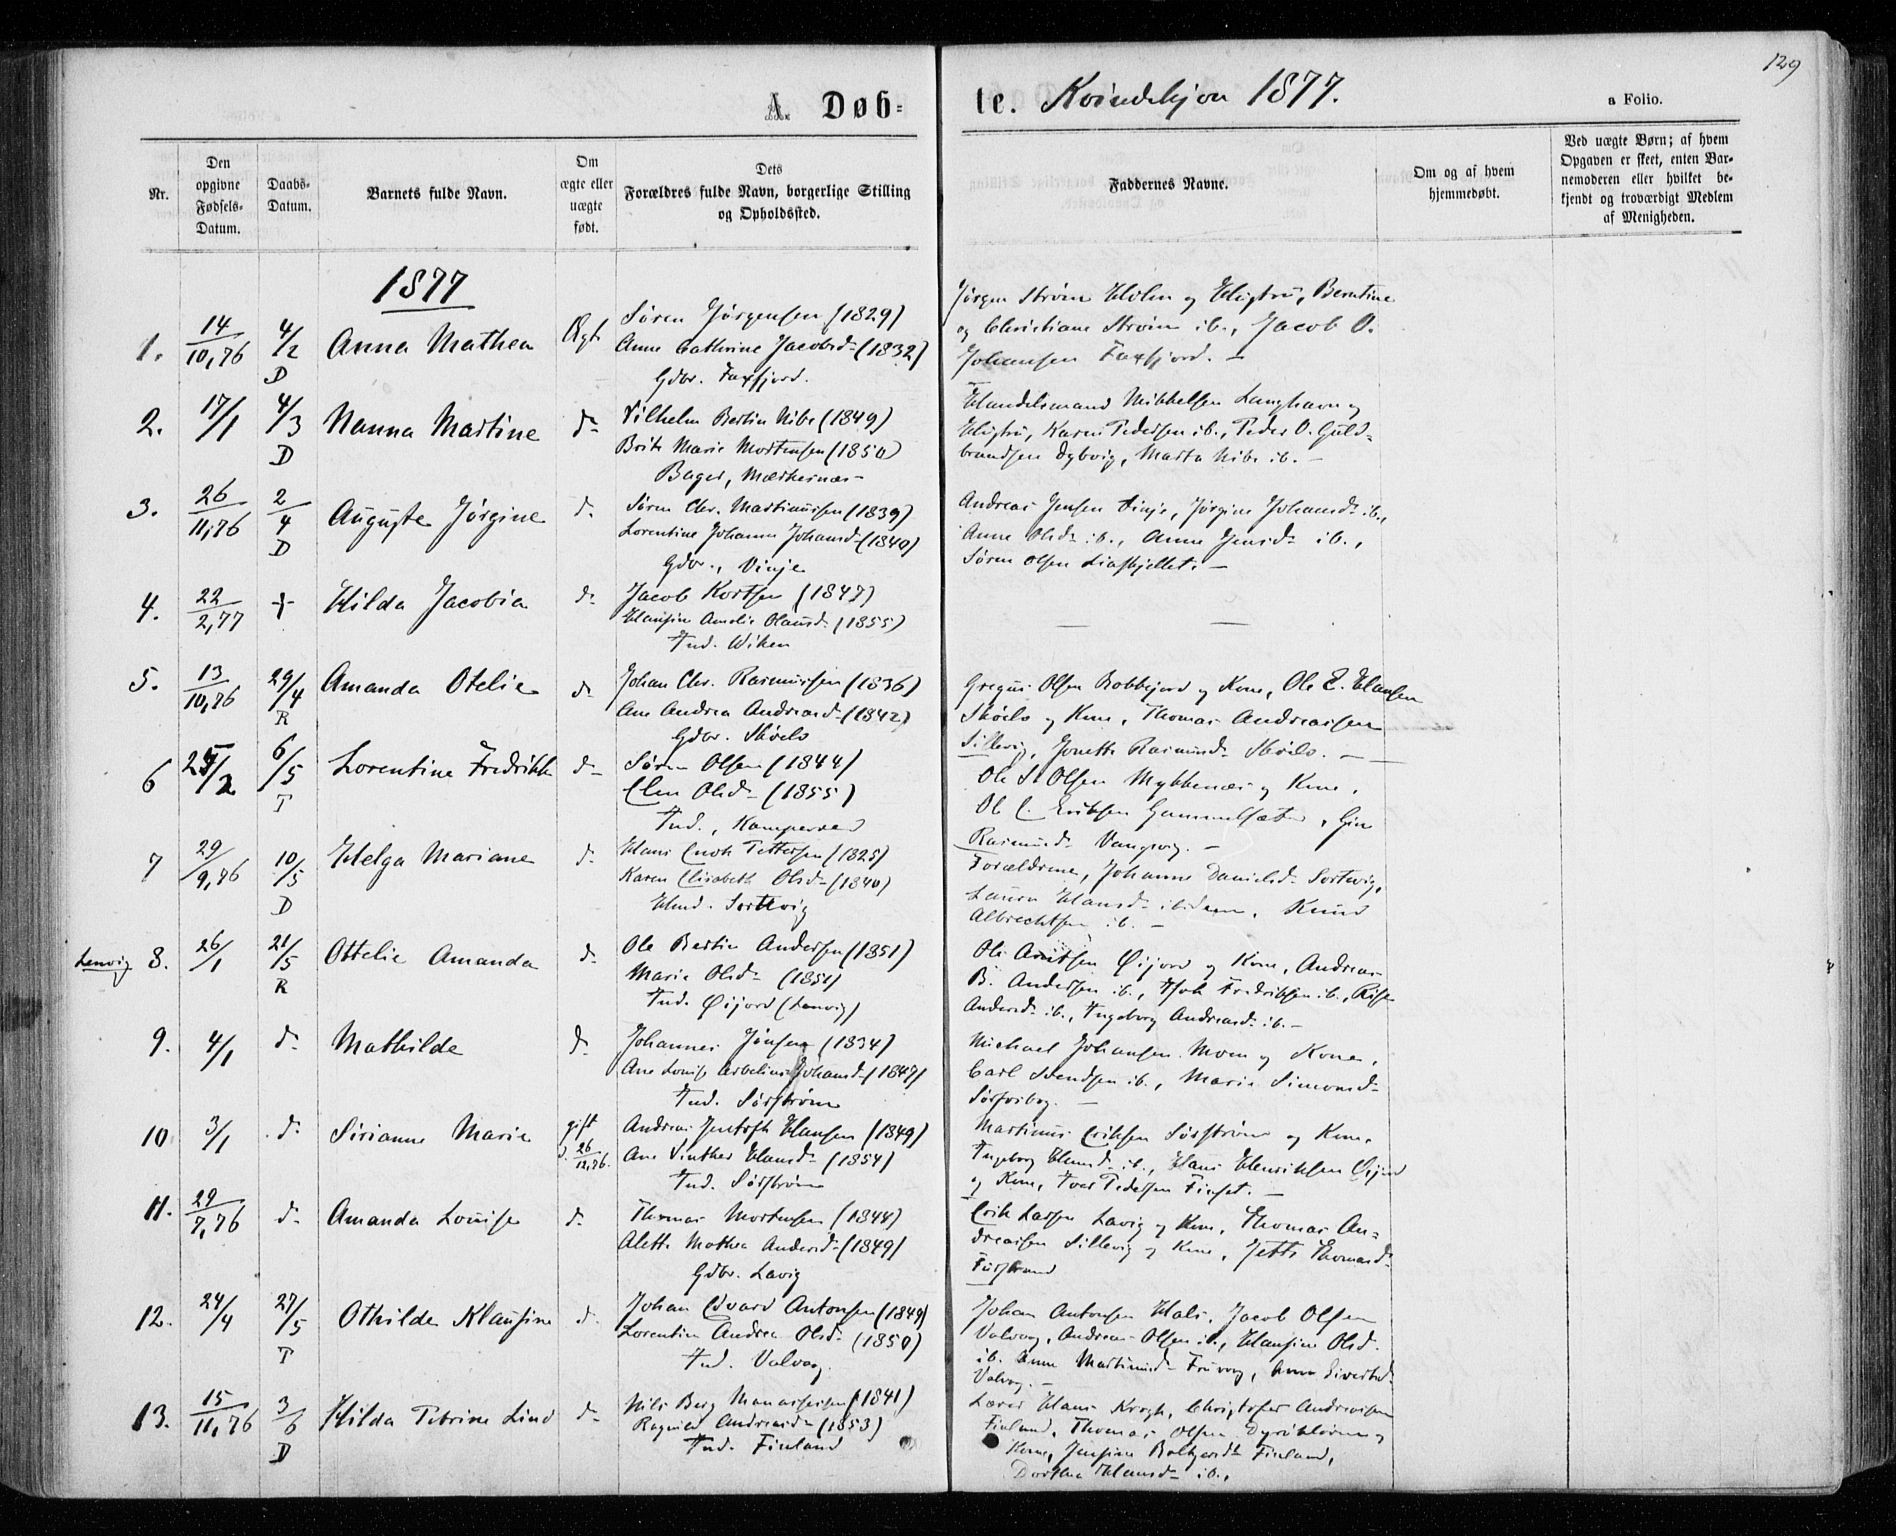 129
A. Døb-
te. Kvindekjøn 1877.
a Folio.
Nr.
Den opgivne Fødsels-Datum.
Daabs-Datum.
Barnets fulde Navn.
Om ægte eller uægte født.
Dets Forældres fulde Navn, borgerlige Stilling og Opholdssted.
Faddernes Navne.
Om og af hvem hjemmedøbt.
Ved uægte Børn; af hvem Opgaven er skeet, enten Barnemoderen eller hvilket bekjendt og troværdigt Medlem af Menigheden.
1877
1. 14/10,76 4/2 D Anna Mathea Ægt
Søren Jørgensen (1829)
Anne Cathrine Jacobsd- (1832)
Gdbr. Faxfjord.
Jørgen Strøm Holm og Hustru, Berntine
og Christiane Strøm ib., Jacob O.
Johansen Faxfjord. -
2. 17/1 4/3 D Nanna Martine d-
Vilhelm Bertin Nibe (1849)
Brit Marie Mortensen (1850)
Bager,
Handelsmand Mikkelsen Langhavn og
Hustru, Karen Pedersen ib., Peder O. Guld-
brandsen Dybvig, Marta Nibe ib. -
3. 26/11,76 2/4 D Auguste Jørgine d.
Søren Chr. Martinussen (1839)
Lorentine Johanna Johansd- (1840)
Gdbr., Vinje
Andreas Jensen Vinje, Jørgine Johansd- ib.,
Anne Olsd- ib., Anne Jensd- ib.,
Søren Olsen
4. 22/2,77 + Hilda Jacobia d-
Jacob Kortsen (1847)
Hansine Amalie Olausd- (1855)
Ind. Wiken
5. 13/10,76 29/4 R Amanda Otelie d-
Johan Chr. Rasmussen (1836)
Ane Andrea Andreasd- (1842)
Gdbr. Skøelv
Gregus Olsen Bobbejord og Kone, Ole E. Hansen
Skøelv og Kone, Thomas Andreassen
Sillevig, Jonette Rasmusd- Skøelv. -
6 25/2 6/5 T Lorentine Fredrikke d-
Søren Olsen (1844)
Elen Olsd- (1855)
Ind., Kampevær
Ole S. Olsen Mykkenæs og Kone,
Ol C. Eriksen Gammelsæter,
Rasmusd- Vangsvig. -
7 29/9,76 10/5 D Helga Mariane d-
Hans Enok Pettersen (1825)
Karen Elisabeth Olsd- (1840)
Hmd. Sortevig
Forældrene, Johanne Danielsd- Sortevig,
Laura Hansd- ibidem, Knud
Albrechtsen ib. -
Lenvig 8. 26/1 21/5 R Ottelie Amanda d-
Ole Bertin Andersen (1851)
Marie Olsd- (1851)
Ind. Øijord (Lenvig)
Ole Arntsen Øijord og Kone, Andreas
B. Andersen ib., Fredriksen ib.,
Andersd- ib., Ingeborg Andreasd- ib. -
9. 4/1 d- Mathilde d-
Johannes Jønsen (1834)
Ane Louise Johansd- (1847)
Ind. Sørstrøm
Michael Johansen Moen og Kone,
Carl Svendsen ib., Marie Simonsd-
10 3/1 d- Sirianne Marie gift d. 26/12,76.
Andreas Jentoft Hansen (1849)
Ane Vinther Hansd- (1854)
Ind. Sørstrøm
Martinus Eriksen Sørstrøm og Kone,
Ingeborg ib., Hans Henriksen Øijord
og Kone, Iver Pedersen Finset. -
11. 29/7,76 d- Amanda Louise d-
Thomas Mortensen (1844)
Alette Mathea Andersd- (1849)
Gdbr. Lavig
Erik Larsen Lavig og Kone, Thomas An-
dreassen Sillevig og Kone, Jette Thomasd-
12. 24/4 27/5 T Othilde Klausine d-
Johan Edvard Antonsen (1849)
Lorentine Andrea Olsd- (1850)
Ind. Valvaag.
Johan Antonsen Hals, Jacob Olsen
Valvaag, Andreas Olsen ib., Hansine Olsd.
ib. Anne Martinusd- Anne Sivertsd-
Valvag. -
13. 15/11,76 3/6 D Hilda Petrine Lind d-
Nils Berg Manassesen (1841)
Ragnild Andreasd- (1853)
Ind. Finland
Lærer Hans Krogh, Christofer Andreassen
Finland, Thomas Olsen og
Kone, Jensine Finland,
Dorthea Hansd- ib.,